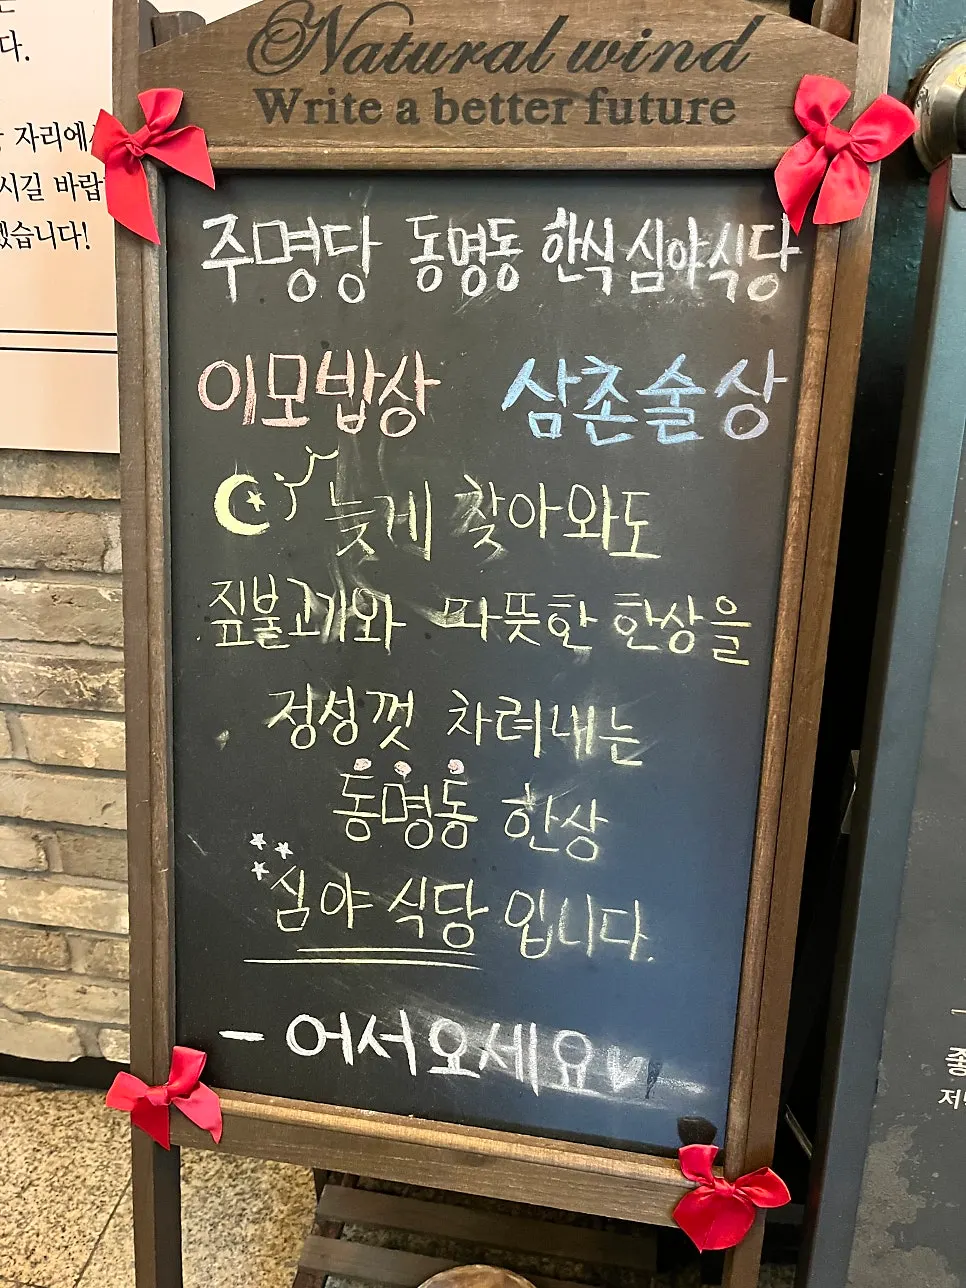 다.
자리에서
시길 바랍
겠습니다!
Natural wind
Write a better future
주명당 동명동 한식 심야식당
이모밥상 삼촌술상
늦게 찾아와도
짚불고기와 따뜻한 한상을
정성껏 차려내는
동명동 한상
심야 식당 입니다.
- 어서오세요